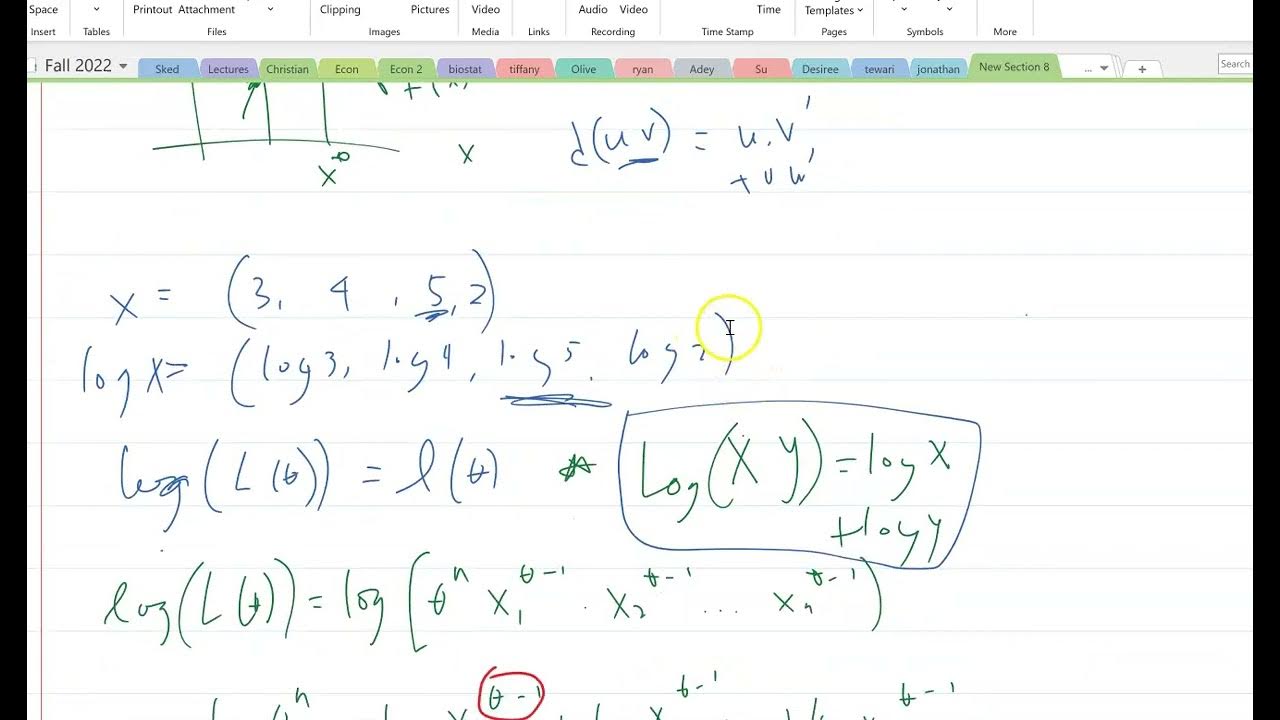 Space Printout Attachment Clipping Pictures Video Audio Video Time Templates
Insert Tables Files Images Media Links Recording Time Stamp Pages Symbols More
Fall 2022 Sked Lectures Christian Econ Econ 2 biostat tiffany Olive ryan Adey Su Desiree tewari jonathan New Section 8 ... + Search
d(u v) = u.v'
+ v u'
x
x
x = (3, 4, 5, 2)
log x = (log 3, log 4, log 5, log 2)
log(L(θ)) = l(θ) * Log(X Y) = log X
+ log y
log(L(θ)) = log[θ^n x_1^θ-1 . x_2^θ-1 ... x_n^θ-1)
θ - 1